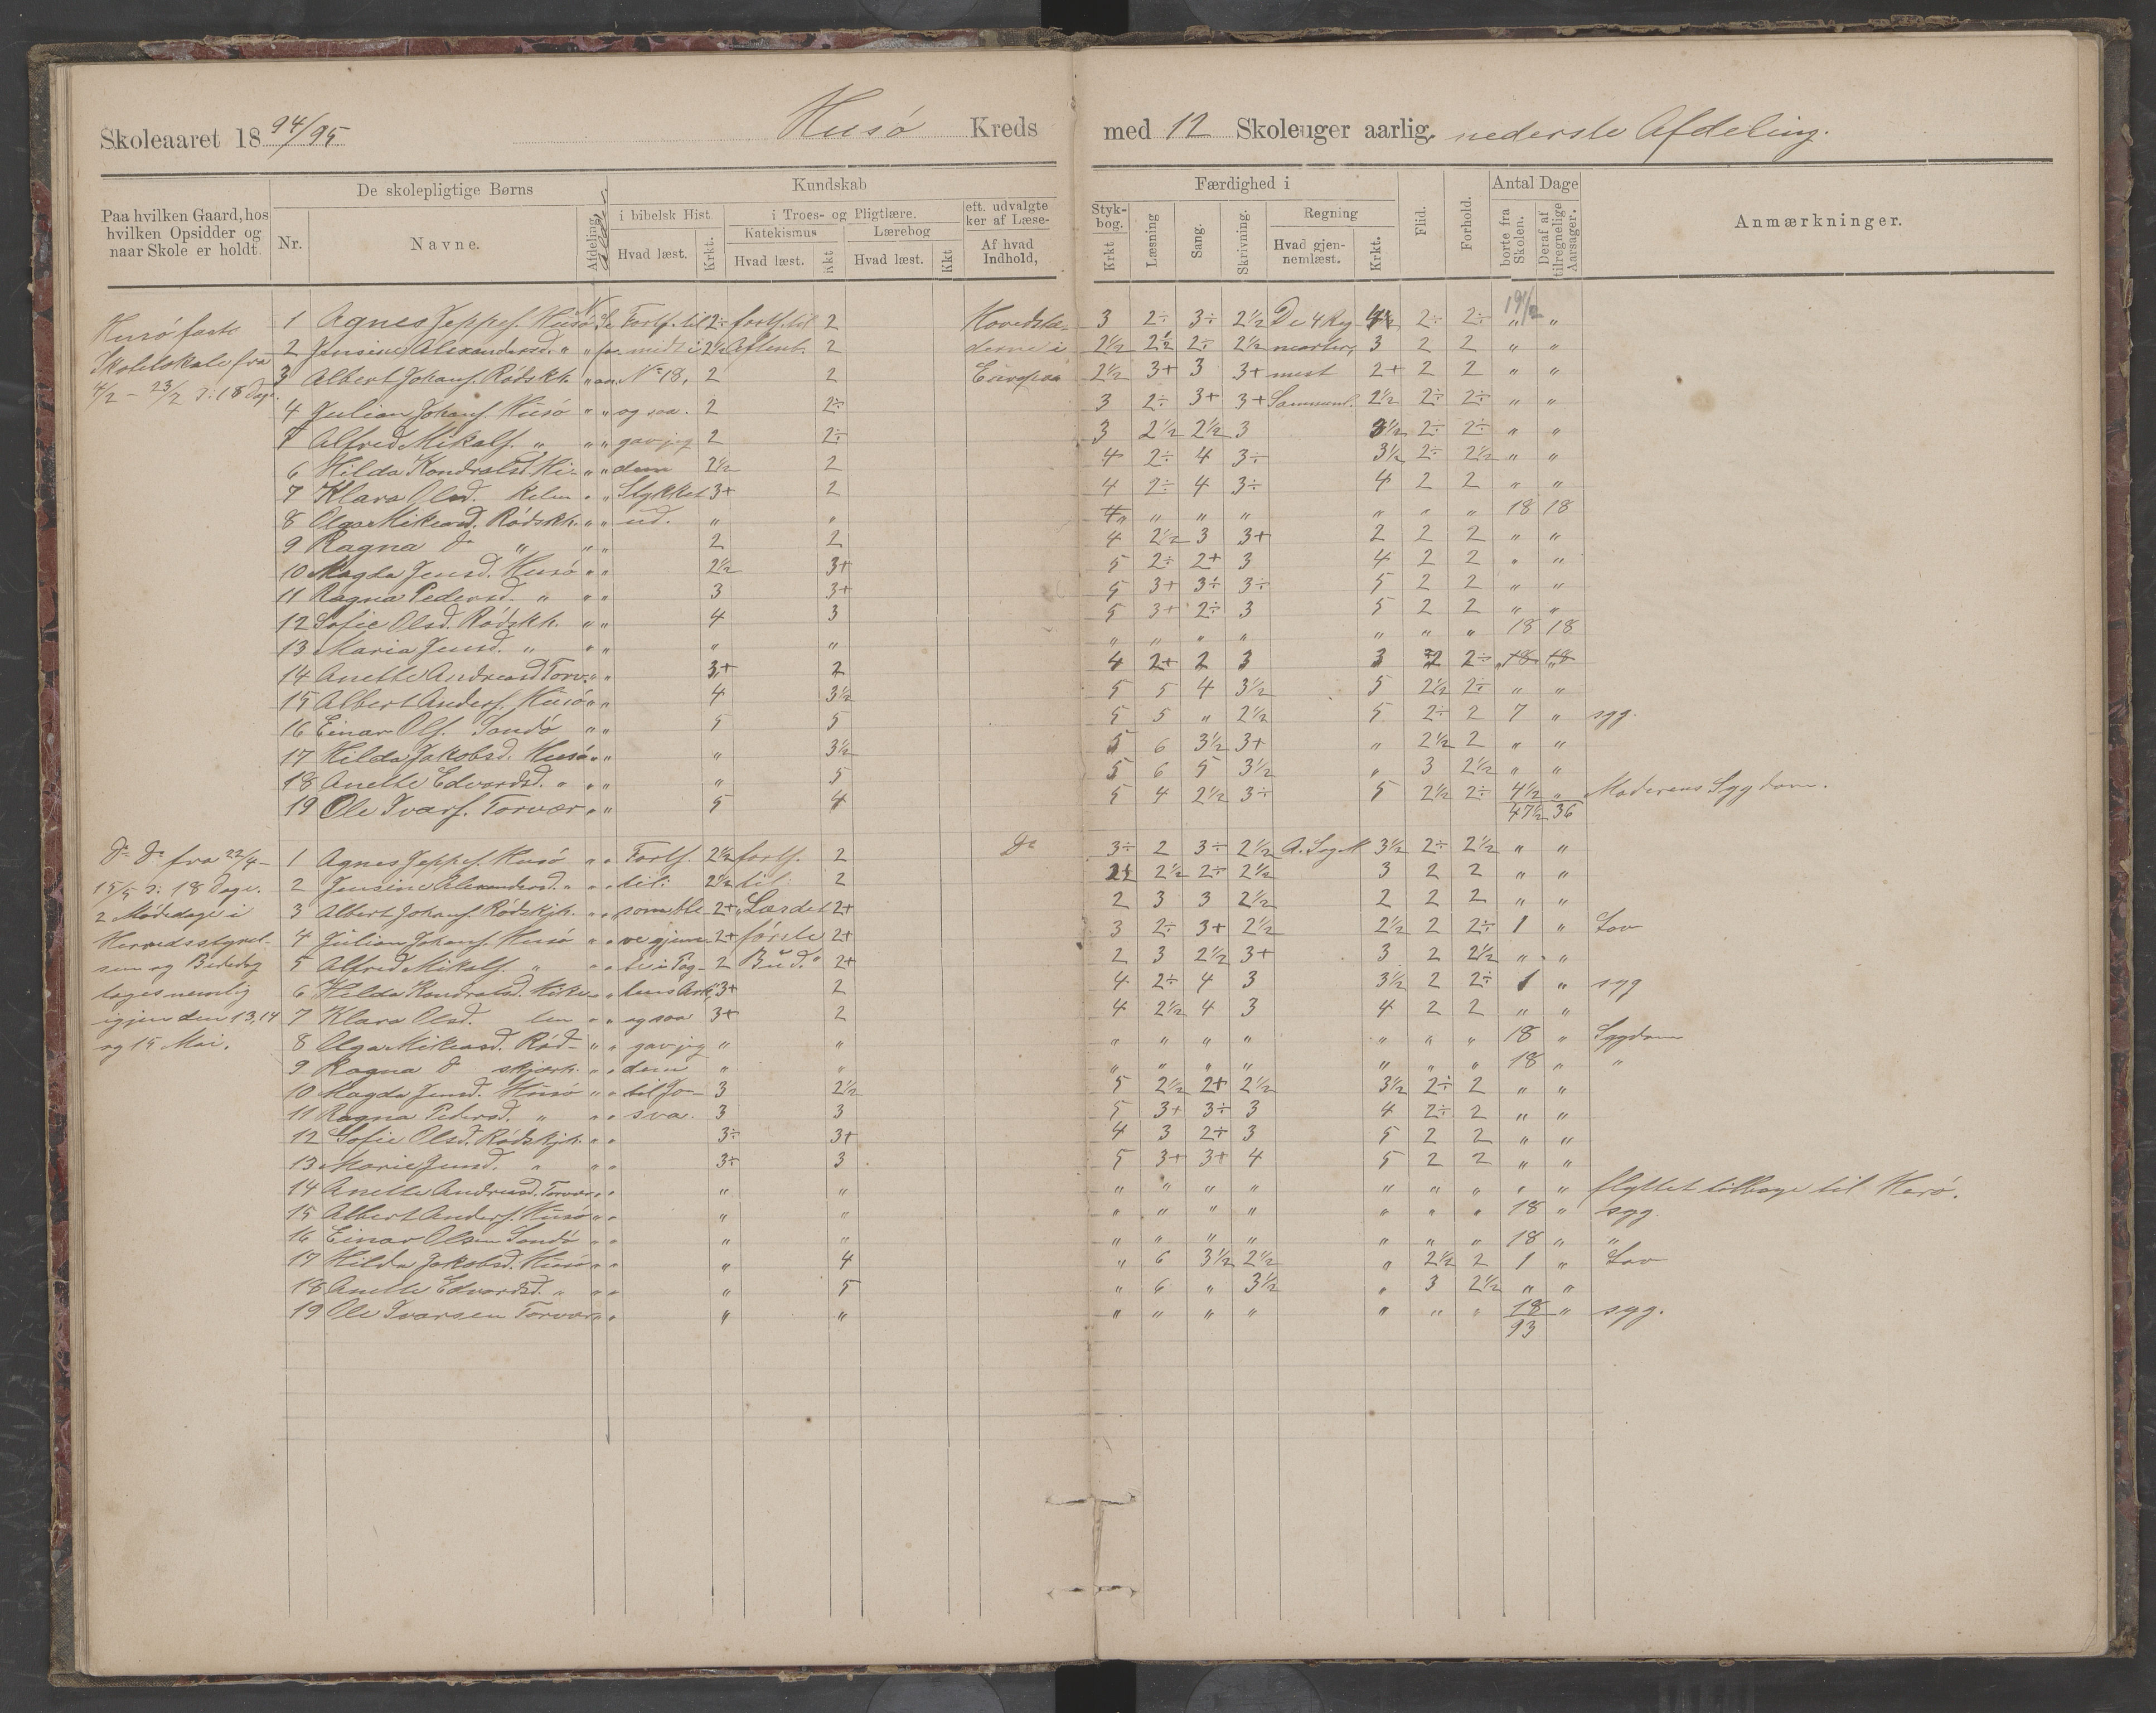 Skoleaaret 1894/95 Husö Kreds med 12 Skoleuger aarlig. nederste Afdeling.
Paa hvilken Gaard, hos hvilken Opsidder og naar Skole er holdt.
De skolepligtige Børns
Nr.
Navne.
Afdeling.
Kundskab
i bibelsk Hist.
Hvad læst.
Krkt.
i Troes- og Pligtlære.
Katekismus
Hvad læst.
Kkt
Lærebog
Hvad læst.
Kkt
eft. udvalgte
ker af Læse-
Af hvad Indhold,
Færdighed i
Styk-bog.
Krkt
Læsning
Sang.
Skrivning.
Regning
Hvad gjen-nemlæst.
Krkt.
Flid.
Forhold.
Antal Dage
borte fra Skolen.
Deraf af tilregnelige Aarsager.
Anmærkninger.
Husö faste
Skolelokale fra
4/2 - 23/2 ɔ: 18 Dage.
Hovedstæ-
derne i
Europa
19 1/2
1 Agnes Jeppes. Husö Forts. til 2÷ forts. til 2 3 2÷ 3÷ 2½ De 4 Reg 2÷ 2÷ " "
2 Jensine Alexandersd. " " midt i 2½ Aftenb. 2 2½ 2½ 2÷ 2½ 3 2 2 " "
3 Albert Johans. Rödskh. " No 18, 2 2 2½ 3+ 3 3+ mest 2+ 2 2 " "
4 Julian Johans. Husö " " og saa 2 2÷ 3 2÷ 3+ 3+ Sammenl. 2½ 2÷ 2÷ " "
5 Alfred Mikals. " " " gav jeg 2 2÷ 3 2½ 2½ 3 3½ 2÷ 2÷ " "
6 Hilda Kondratsd. Hi- " " dem 2½ 2 4 2÷ 4 3÷ 3½ 2÷ 2½ " "
7 Klara Olsd. kelen " " Stykket 3+ 2 4 2÷ 4 3÷ 4 2 2 " "
8 Olga Mikeasd. Rödskh. " " ud. " " " " " " " " " 18 18
9 Ragna do " " " 2 2 4 2½ 3 3+ 2 2 2 " "
10 Magda Jensd. Husö " " 2½ 3+ 5 2÷ 2+ 3 4 2 2 " "
11 Ragna Pedersd. " " " 3 3+ 5 3+ 3÷ 3÷ 5 2 2 " "
12 Sofie Olsd. Rödskh. " " 4 3 5 3+ 2÷ 3 5 2 2 " "
13 Maria Jensd. " " " " " " " " " " " " 18 18
14 Anette Andreasd Torv. " " 3+ 2 4 2+ 2 3 3 2 2÷ "18 "18
15 Albert Anders. Husö " " 4 3½ 5 5 4 3½ 5 2½ 2÷ " "
16 Einar Ols. Sandö " " 5 5 5 5 " 2½ 5 2÷ 2 7 " syg.
17 Hilda Jakobsd. Husö " " " 3½ 5 6 3½ 3+ " 2½ 2 " "
18 Anette Edvardsd. " " " " 5 5 6 5 3½ " 3 2½ " "
19 Ole Ivars. Torvær " " 5 4 5 4 2½ 3÷ 5 2½ 2÷ 4½ " Moderens Sygdom.
47½ 36
do do fra 22/4 -
15/5 ɔ: 18 Dage.
2 Mödedage i
Herredsstyrel-
sen og Bededag
toges nemlig
igjen den 13, 14
og 15 Mai.
do
1 Agnes Jeppes. Husö " " Forts. 2½ forts. 2 3÷ 2 3÷ 2½ 3½ 2÷ 2½ " "
2 Jensine Alexandersd. " " " til: 2½ til: 2 2½ 2÷ 2½ 3 2 2 " "
3 Albert Johans. Rödskjh. " " som ble 2+ "Lærdet 2+ 2 3 3 2½ 2 2 2 " "
4 Julian Johans. Husö " " ve gjem- 2+ förste 2+ 3 2÷ 3+ 2½ 2½ 2 2÷ 1 " Lov
5 Alfred Mikals. " " " te i Pag- 2 Bud." 2+ 2 3 2½ 3+ 3 2 2½ " "
6 Hilda Kondratsd. Hike- " " tens Ark, 3+ 2 4 2÷ 4 3 3½ 2 2÷ 1 " syg
7 Klara Olsd. len " " og saa 3+ 2 4 2½ 4 3 4 2 2 " "
8 Olga Mikeasd. Röd- " " gav jeg " " " " " " " " " 18 " Sygdom
9 Ragna do skjærh. " " dem " " " " " " " " " 18 " "
10 Magda Jensd. Husö " " til Jo- 3 2½ 5 2½ 2+ 2½ 3½ 2÷ 2 " "
11 Ragna Pedersd. " " " sva. 3 3 5 3+ 3÷ 3 4 2÷ 2 " "
12 Sofie Olsd. Rödskjh. " " 3÷ 3+ 4 3 2+ 3 5 2 2 " "
13 Marie Jensd. " " " 3÷ 3 5 3+ 3+ 4 5 2 2 " "
14 Anette Andreasd. Torvær " " " " " " " " " " " " " flyttet tilbage til Herö.
15 Albert Anders. Husö " " " " " " " " " " " 18 " syg.
16 Einar Olsen Sandö " " " " " " " " " " " 18 " "
17 Hilda Jakobsd. Husö " " " 4 " 6 3½ 2½ " 2½ 2 1 " Lov
18 Anette Edvardsd. " " " " 5 " 6 " 3½ " 3 2½ " "
19 Ole Ivarsen Torvær " " " " " " " " " " " 18 " syg.
93